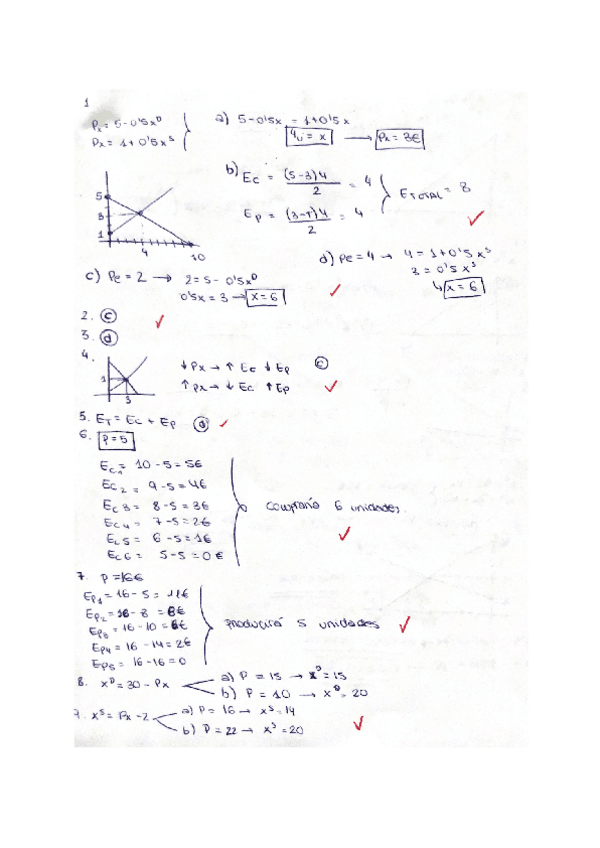 1
Px = 5 - 0'5x^D
Px = 1 + 0'5x^S
a) 5 - 0'5x = 1 + 0'5x
4u = x → Px = 3€
b) Ec = (5-3)4 / 2 = 4
Ep = (3-1)4 / 2 = 4
ETOTAL = 8
5
3
1
4
10
c) Pe = 2 → 2 = 5 - 0'5x^D
0'5x = 3 → x = 6
d) pe = 4 → 4 = 1 + 0'5x^S
3 = 0'5x^S
↳ x = 6
2. c
3. d
4.
1
3
↓Px → ↑Ec ↓Ep
↑px → ↓Ec ↑Ep
5. ET = Ec + Ep
6. P = 5
Ec1 = 10 - 5 = 5€
Ec2 = 9 - 5 = 4€
Ec3 = 8 - 5 = 3€
Ec4 = 7 - 5 = 2€
Ec5 = 6 - 5 = 1€
Ec6 = 5 - 5 = 0€
compraría 6 unidades.
7. p = 16€
Ep1 = 16 - 5 = 11€
Ep2 = 16 - 8 = 8€
Ep3 = 16 - 10 = 6€
Ep4 = 16 - 14 = 2€
Ep5 = 16 - 16 = 0
Producirá 5 unidades
8. x^D = 30 - Px
a) P = 15 → x^D = 15
b) P = 10 → x^D = 20
x^S = Px - 2
a) P = 16 → x^S = 14
b) P = 22 → x^S = 20